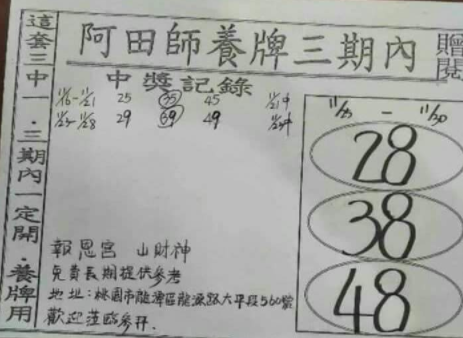 阿田師養牌三期內
贈閱
這套三中一．三期內一定開．養牌用
中獎記錄
11/16-11/21 25 35 45 11/21中
11/23-11/28 29 39 49
11/25 - 11/30
28
38
48
報恩宮 山財神
免費長期提供參考
地址:桃園市龍潭區龍源路大平段560號
歡迎蒞臨參拜.